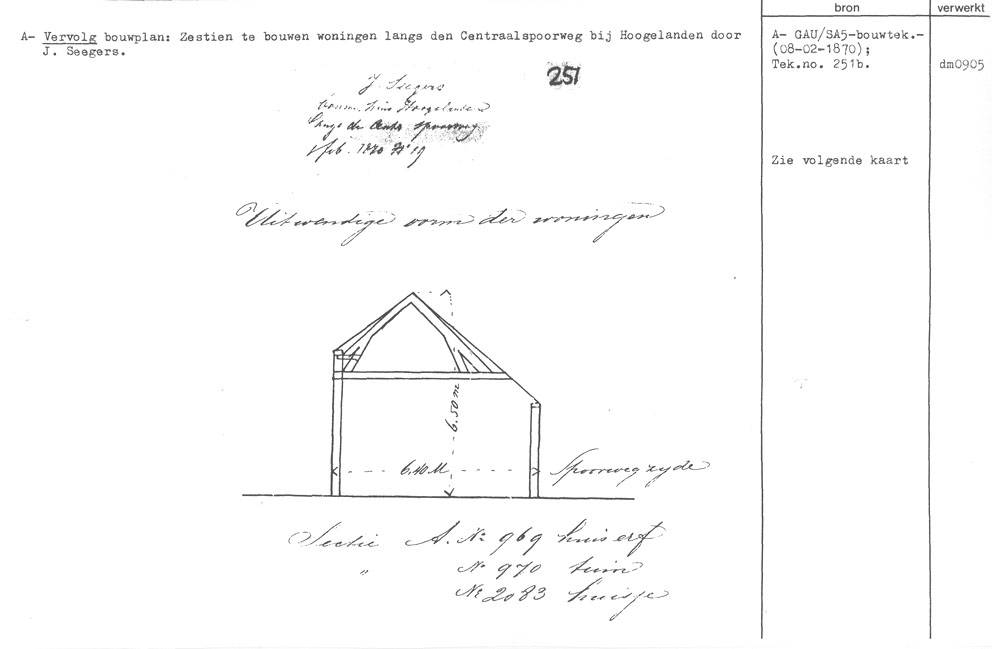 bron
verwerkt
A- Vervolg bouwplan: Zestien te bouwen woningen langs den Centraalspoorweg bij Hoogelanden door
J. Seegers.
A- GAU/SA5-bouwtek.-
(08-02-1870);
Tek.no. 251b.
dm0905
Zie volgende kaart
251
J. Seegers
Hoogelanden
langs de Centr. spoorweg
feb. 1870
Uitwendige vorm der woningen
6.50 m
6.40 M
Spoorwegzyde
Sectie A. No 969 huis erf
" No 970 tuin
No 2083 huisje